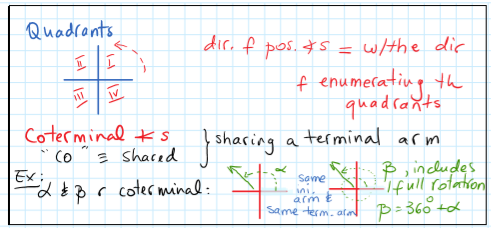 Quadrants
II I
III IV
dir. f pos. ∡s = w/the dir
f enumerating th
quadrants
Coterminal ∡s } sharing a terminal arm
"co" ≡ shared
Ex:
α & β r coterminal:
α
same
ini.
arm &
same term. arm
β, includes
1 full rotation
β = 360° + α